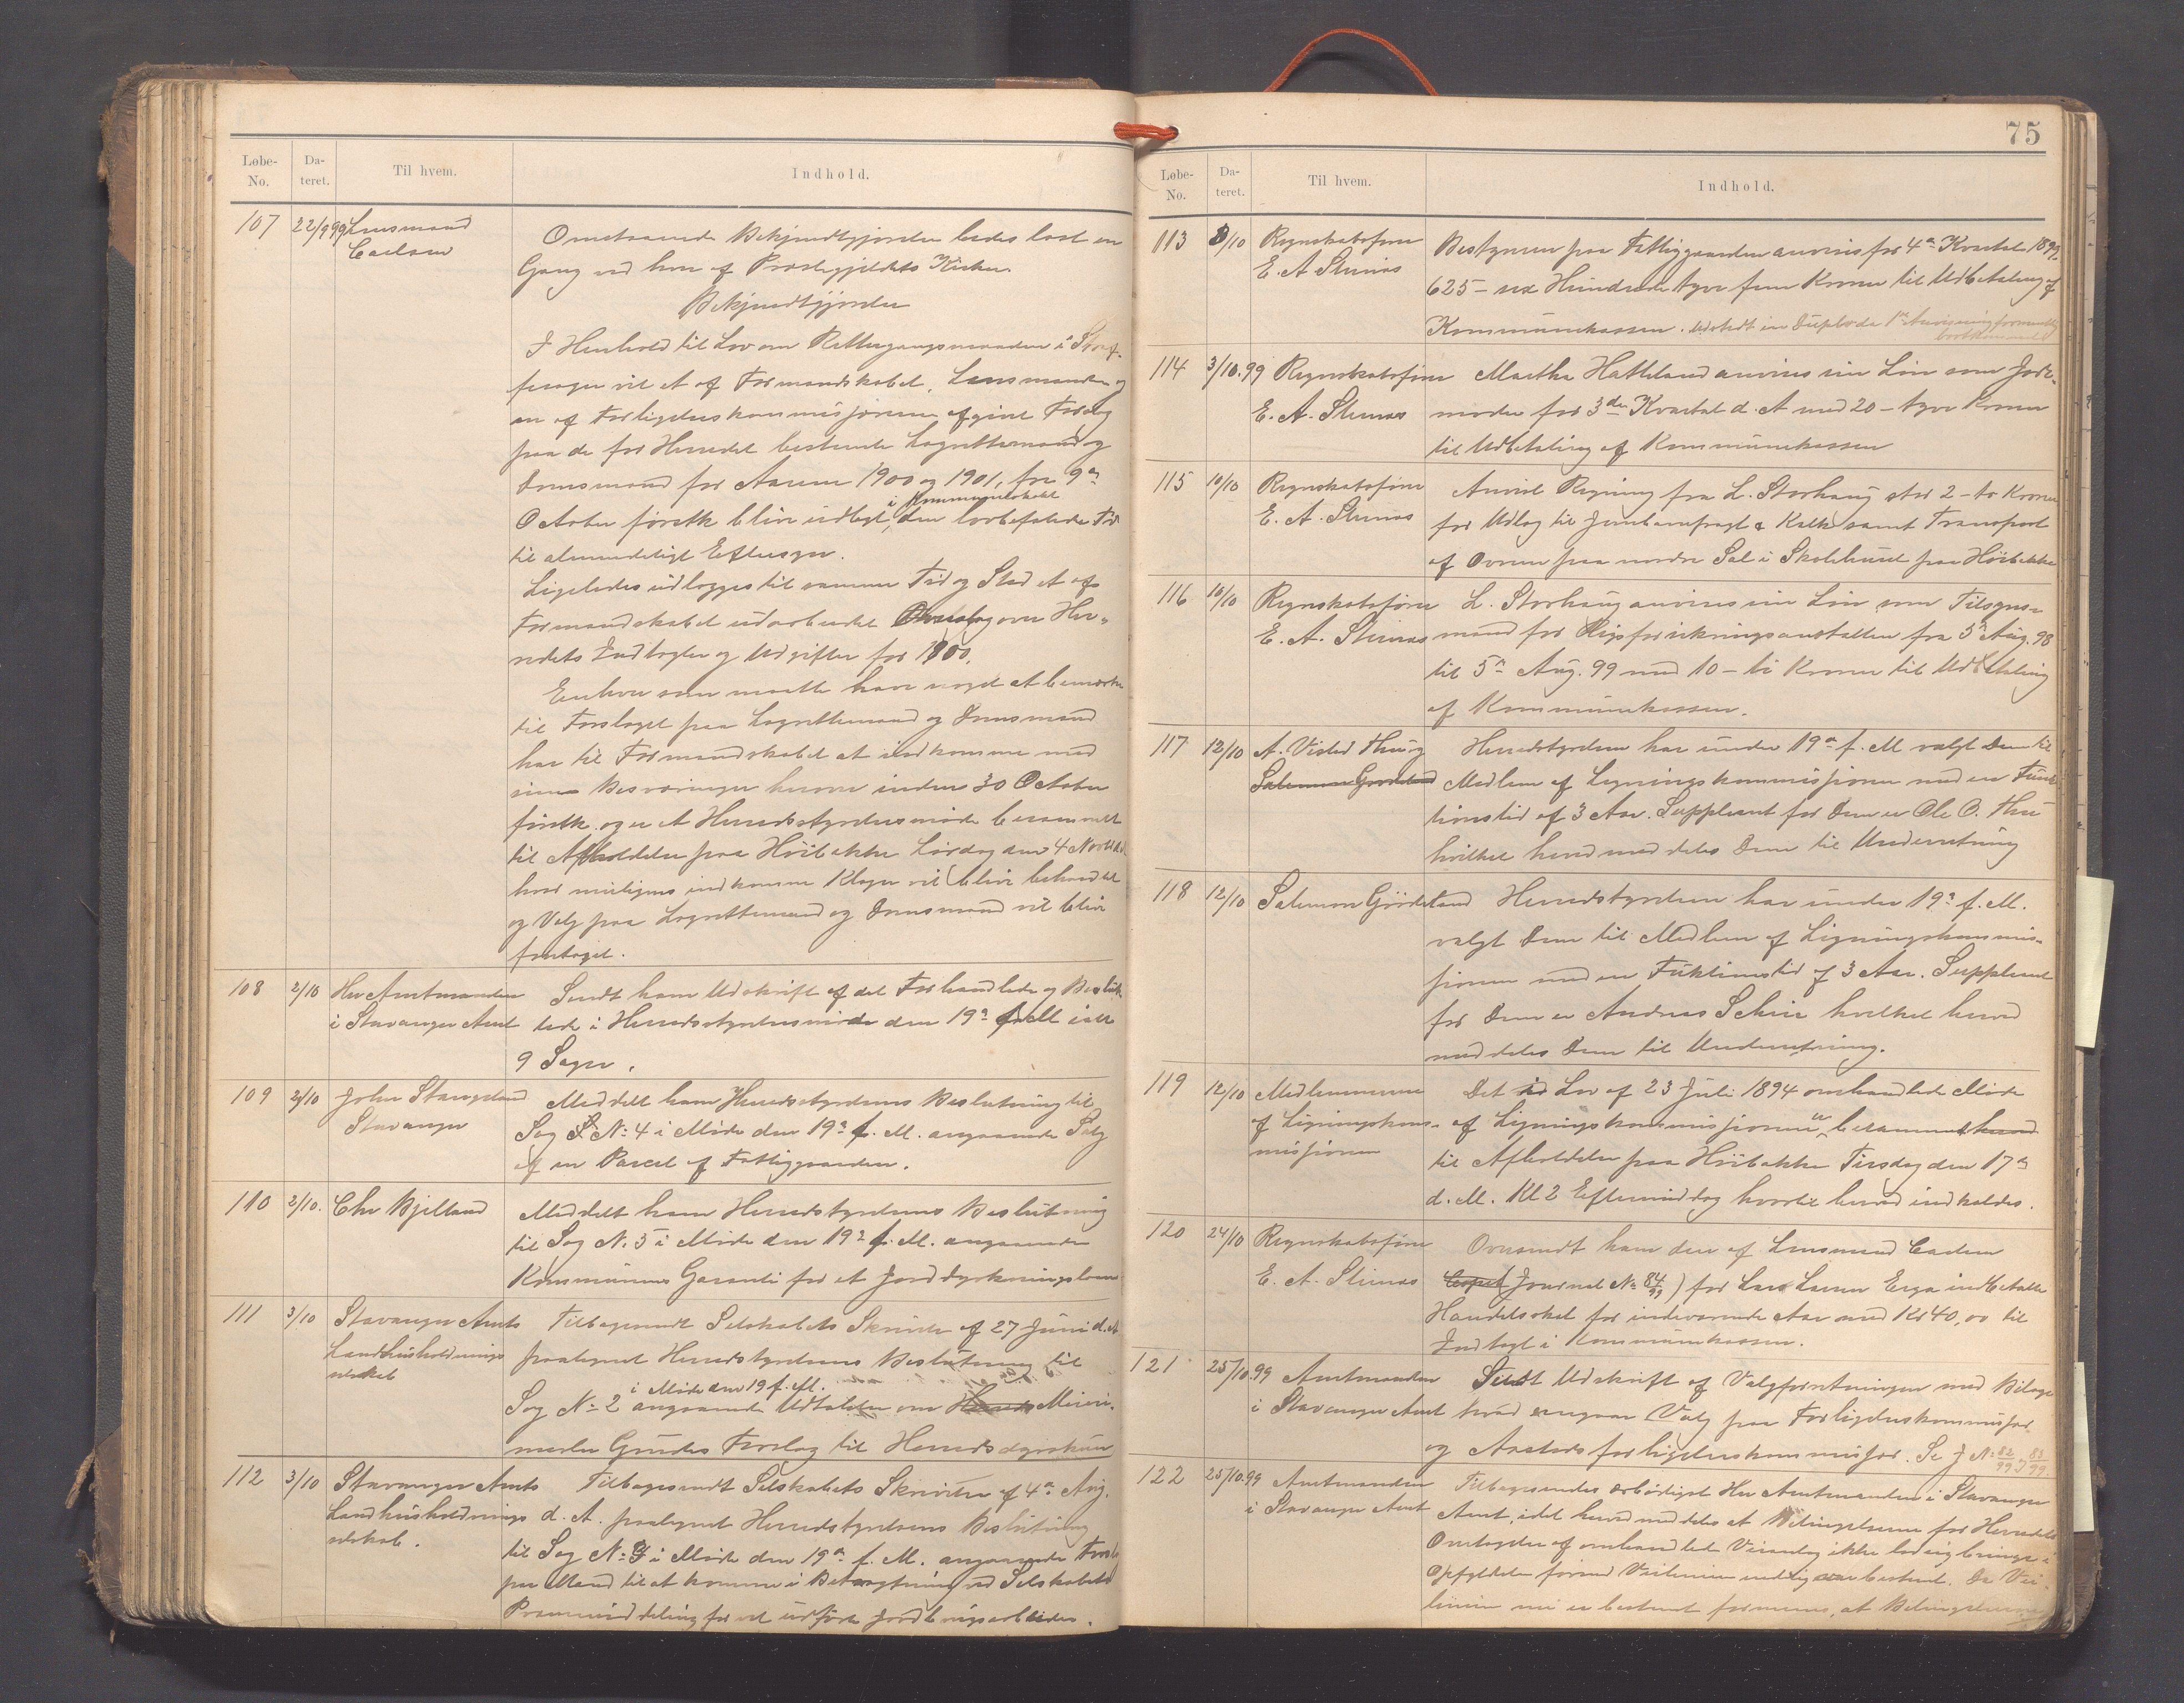 Løbe-No. Da-teret. Til hvem. Indhold.
107 22/9 99 Lensmand Carlsen
Omstaaende Bekjendtgjørelse bedes læst en
Gang ved hver af Præstegjeldets Kirker.
Bekjendtgjørelse
I Henhold til Lov om Rettergangsmaaden i Straf-
fesager vil et af Formandskabet, Lensmanden og
en af Forligelseskommissjonerne afgivet Forslag
paa de for Herredet bestemte Lagrettemænd og
Domsmænd for Aarene 1900 og 1901, fra 9de
October førstk. blive udlagt i Kommunelokalet den lovbefalede Tid
til almindeligt Eftersyn.
Ligeledes udlægges til samme Tid og Sted et af
Formandskabet udarbeidet Overslag over Her-
redets Indtægter og Udgifter for 1900.
Enhver som maatte have noget at bemærke
til Forslaget paa Lagrettemænd og Domsmænd
har til Formandskabet at indkomme med
sine Besværinger herover inden 30 October
førstk. og er et Herredsstyrelsesmøde berammet
til Afholdelse paa Høibakke Lørdag den 4 Novbr
hvor muligens indkomne Klager vil blive behandlet
og Valg paa Lagrettemænd og Domsmænd vil blive
foretaget.
108 2/10 Hr Amtmanden i Stavanger Amt
Sendt ham Udskrift af det Forhandlede og Beslut-
tede i Herredsstyrelsesmøde den 19de f. M i alt
9 Sager.
109 2/10 John Stangeland Stavanger
Meddelt ham Herredsstyrelsens Beslutning til
Sag No 4 i Møde den 19de f. M. angaaende Salg
af en Parcel af Fattiggaarden.
110 2/10. Chr Bjelland
Meddelt ham Herredsstyrelsens Beslutning
til Sag N. 3 i Møde den 19de f. M. angaaende
Kommunens Garanti for et Jorddyrkningslaan
111 3/10 Stavanger Amts Landhusholdnings selskab
Tilbagesendt Selskabets Skrivelse af 27 Juni d. A
paategnet Herredsstyrelsens Beslutning til
Sag No 2 i Møde den 19 f. M. angaaende Udtalelse om Meieri-
mester Grudes Forslag til Herredsdyrskuer
112 3/10 Stavanger Amts Landhusholdnings selskab.
Tilbagesendt Selskabets Skrivelse af 4de Aug.
d. A. paategnet Herredsstyrelsens Beslutning
til Sag No i Møde den 19de f. M. angaaende Forslag
paa Mænd til at komme i Betragtning ved Selskabets
Præmieuddeling for vel udførte Jordbrugsarbeider.
75
Løbe-No. Da-teret. Til hvem. Indhold.
113 3/10 Regnskabsfører E. A Stennæs
Bestyreren paa Fattiggaarden anvises for 4de Kvartal 1899
625 – sex Hundrede tyve fem Kroner til Udbetaling af
Kommunekassen. Udstedt in Duplo da 1ste Anvisning formentlig
bortkommet
114 3/10.99 Regnskabsfører E. A. Stennæs
Martha Hatteland anvises sin Løn som Jord-
moder for 3die Kvartal d. A med 20 – tyve Kroner
til Udbetaling af Kommunekassen
115 10/10 Regnskabsfører E. A. Stennæs
Anvist Regning fra L. Storhaug stor 2 – to Kroner
for Udlæg til Jernbanefragt & Kalk samt Transport
af Ovnen paa nordre Sal i Skolehuset paa Høibakke
116 10/10 Regnskabsfører E. A. Stennæs
L. Storhaug anvises sin Løn som Tilsyns-
mand for Rigsforsikringsanstalten fra 5te Aug. 98
til 5te Aug. 99 med 10 – ti Kroner til Udbetaling
af Kommunekassen.
117 12/10 A. Visted Thu
Herredsstyrelsen har under 19de f. M valgt Dem til
Medlem af Ligningskommissionen med en Funk-
tionstid af 3 Aar. Suppleant for Dem er Ole O. Thu
hvilket herved meddeles Dem til Underretning
118 12/10 Salemon Grødeland
Herredsstyrelsen har under 19de f. M.
valgt Dem til Medlem af Ligningskommis-
sjonen med en Funktionstid af 3 Aar. Suppleant
for Dem er Andreas hvilket herved
meddeles Dem til Underretning.
119 12/10 Medlemmerne af Ligningskom- missjonen
Det Lov af 23 Juli 1894 omhandlede Møde
af Ligningskommissjonen er berammet
til Afholdelse paa Høibakke Tirsdag den 17de
d. M. Kl 2 Eftermiddag hvortil herved indkaldes.
120 24/10 Regnskabsfører E. A. Stennæs
Oversendt ham den af Lensmand Carlsen
(Journal No 84/99) for Lars Larsen Erga indbetalte
Handelsskat for indeværende Aar med Kr 40,00 til
Indtægt i Kommunekassen.
121 25/10.99 Amtmanden i Stavanger Amt
Sendt Udskrift af Valgforretningen med Bilage
hvad angaar Valg paa Forligelseskommissær
og Aastedsforligelseskommissær. Se J No 82/99, 83/99.
122 25/10.99 Amtmanden i Stavanger Amt
Tilbagesendes ærbødigst Hr Amtmanden i Stavanger
Amt, idet herved meddeles at Betingelserne for Herredets
Overtagelse af omhandlede Veianlæg ikke lod sig bringe i
Opfyldelse forend Veilinien endelig bestemt. Da Vei-
linien nu er bestemt formenes, at Betingelserne